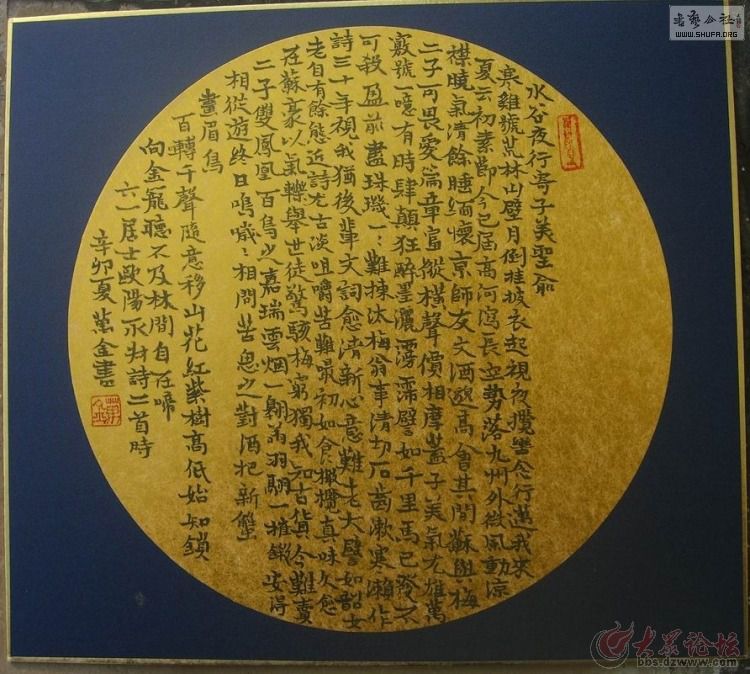 水谷夜行寄子美聖俞
寒雞號荒林山壁月倒挂披衣起視夜攬轡念行邁我來
夏云初素節今已屆高河瀉長空勢落九州外微風動涼
襟曉氣清餘睡緬懷京師友文酒邈高會其間蘇與梅
二子可畏愛篇章富縱橫聲價相摩蓋子美氣尤雄萬
竅號一噫有時肆顛狂醉墨灑滂霈譬如千里馬已發不
可殺盈前盡珠璣一一難揀汰梅翁事清切石齒漱寒瀨作
詩三十年視我猶後輩文詞愈清新心意難老大譬如韶女
老自有餘態近詩尤古淡咀嚼苦難嘬初如食橄欖真味久愈
在蘇豪以氣轢舉世徒驚駭梅窮獨我知古貨今難賣
二子雙鳳凰百鳥之嘉瑞雲烟一翱翔羽翮一摧鎩安得
相從遊終日鳴噦〻相問苦思之對酒把新蟹
畫眉鳥
百轉千聲隨意移山花紅紫樹高低始知鎖
向金籠聽不及林間自在啼
六一居士歐陽永叔詩二首時
辛卯夏萬金書
书艺公社
WWW.SHUFA.ORG
大众论坛
bbs.dzwww.com